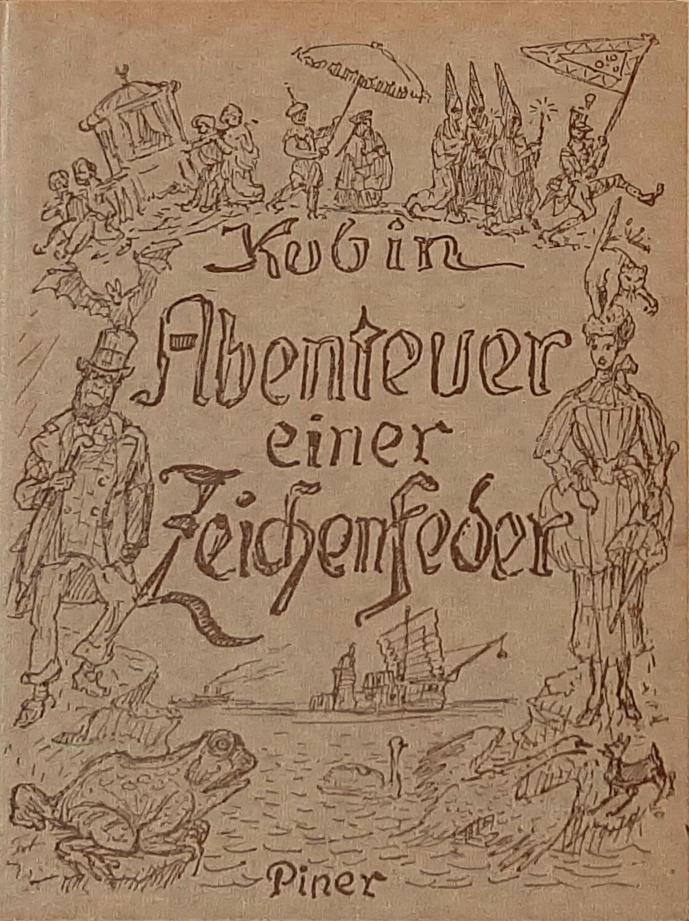 Kubin
Abenteuer
einer
Zeichenfeder
Piner